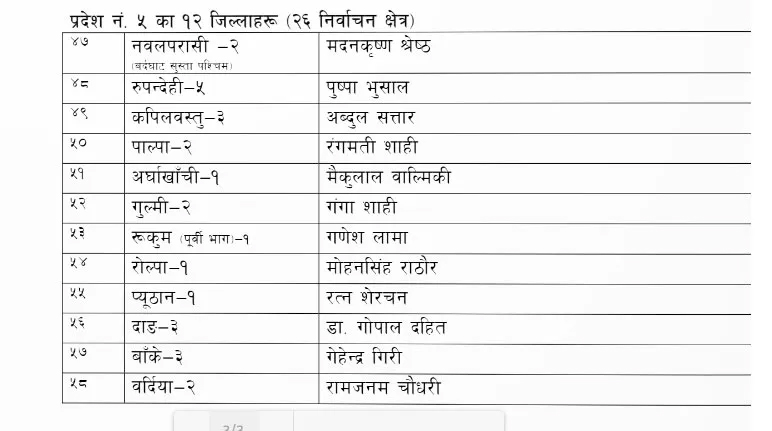 प्रदेश नं. ५ का १२ जिल्लाहरू (२६ निर्वाचन क्षेत्र)
४७ नवलपरासी –२ मदनकृष्ण श्रेष्ठ
(बर्दघाट सुस्ता पश्चिम)
४८ रुपन्देही–५ पुष्पा भुसाल
४९ कपिलवस्तु–३ अब्दुल सत्तार
५० पाल्पा–२ रंगमती शाही
५१ अर्घाखाँची–१ मैकुलाल वाल्मिकी
५२ गुल्मी–२ गंगा शाही
५३ रूकुम (पूर्वी भाग)–१ गणेश लामा
५४ रोल्पा–१ मोहनसिंह राठौर
५५ प्यूठान–१ रत्न शेरचन
५६ दाङ–३ डा. गोपाल दहित
५७ बाँके–३ गेहेन्द्र गिरी
५८ वर्दिया–२ रामजनम चौधरी